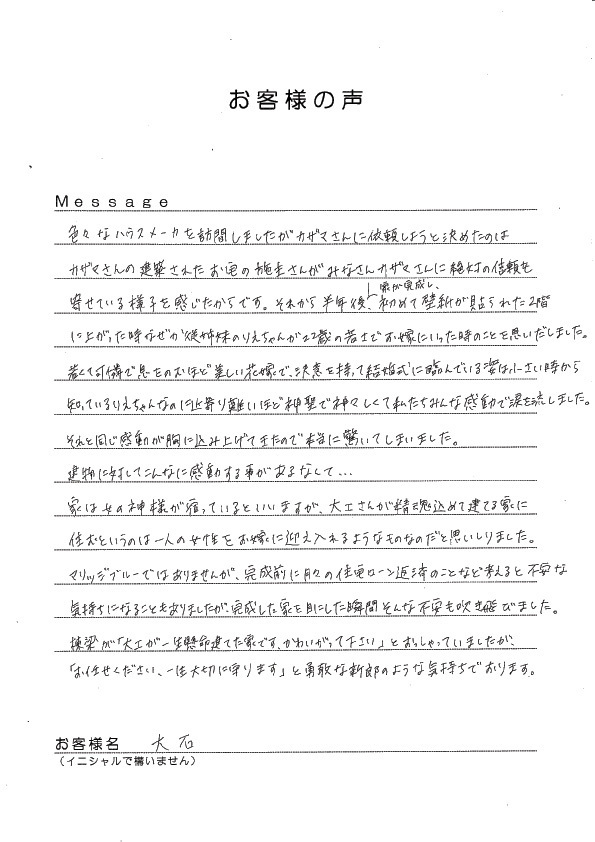 お客様の声
Message
色々なハウスメーカを訪問しましたがカザマさんに依頼しようと決めたのは
カザマさんの建築されたお宅の施主さんがみなさんカザマさんに絶対の信頼を
家が完成し、
寄せている様子を感じたからです。それから半年後、初めて壁紙が貼られた2階
に上がった時なぜか従姉妹のりえちゃんが22歳の若さでお嫁にいった時のことを思いだしました。
若くて可憐で息をのむほど美しい花嫁で、決意を持って結婚式に臨んでいる姿は小さい時から
知っているりえちゃんなのに近寄り難いほど神聖で神々しくて私たちみんな感動で涙を流しました。
それと同じ感動が胸に込み上げてきたので本当に驚いてしまいました。
建物に対してこんなに感動する事があるなして…
家は女の神様が宿っているといいますが、大工さんが精魂込めて建てる家に
住むというのは一人の女性をお嫁に迎え入れるようなものなのだと思いしりました。
マリッジブルーではありませんが、完成前に月々の住宅ローン返済のことなど考えると不安な
気持ちになることもありましたが、完成した家を目にした瞬間そんな不安も吹き飛びました。
棟梁が「大工が一生懸命建てた家です、かわいがって下さい」とおっしゃっていましたが、
「お任せください、一生大切に守ります」と勇敢な新郎のような気持ちでおります。
お客様名 大石
（イニシャルで構いません）